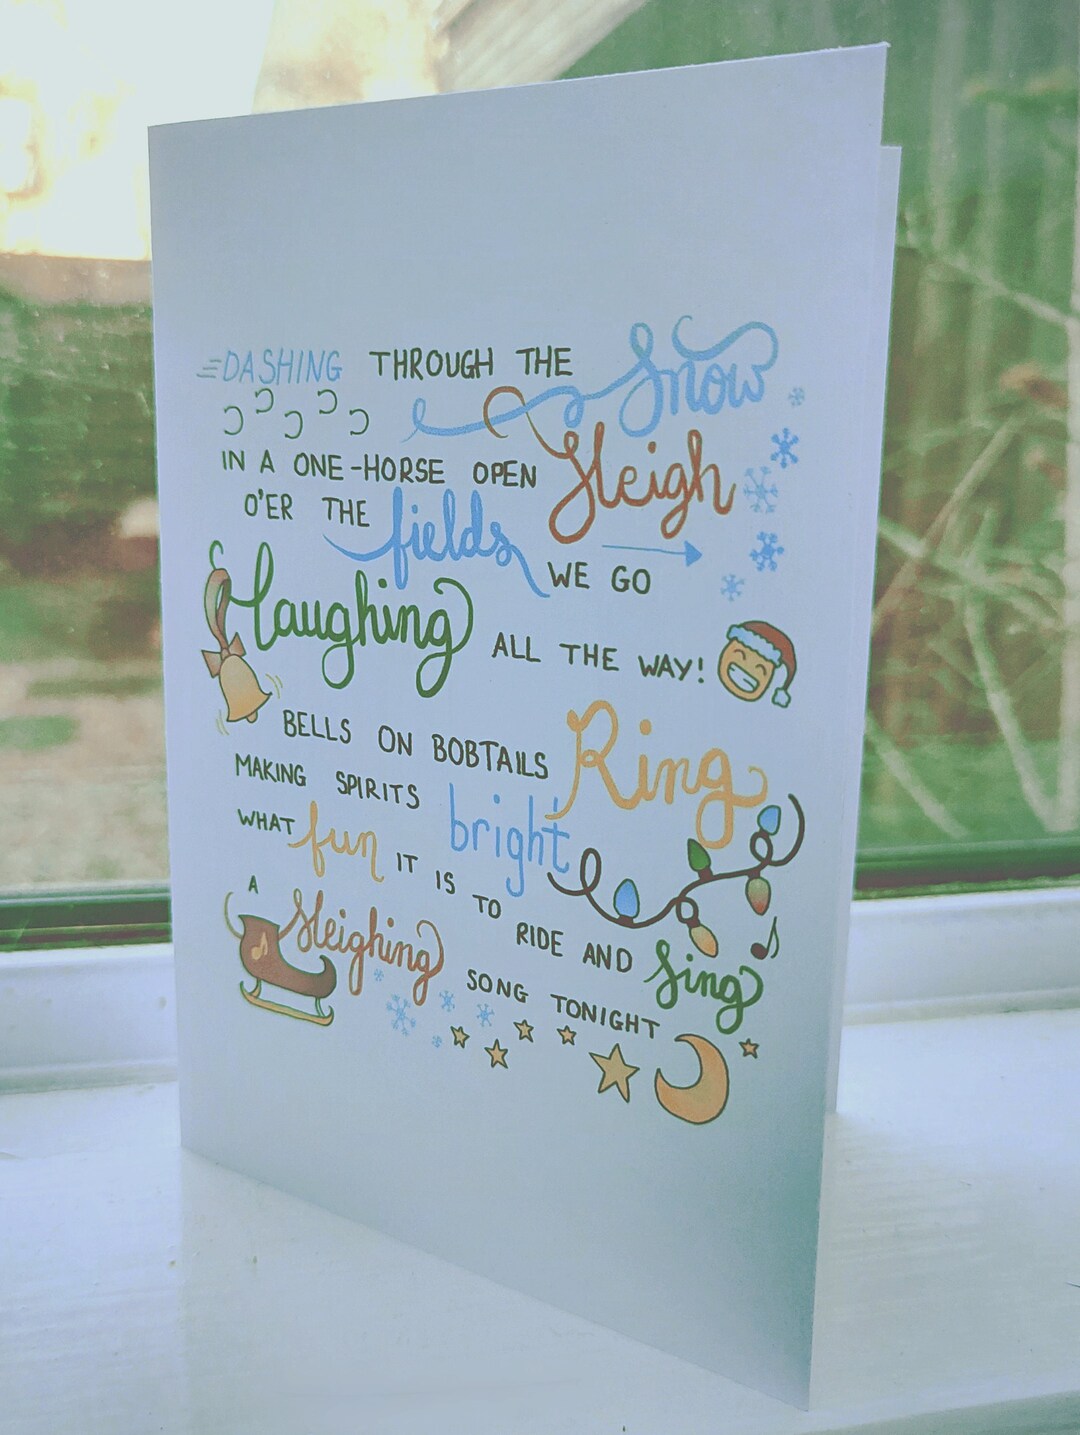 DASHING THROUGH THE Snow
IN A ONE-HORSE OPEN Sleigh
O'ER THE fields WE GO
laughing ALL THE WAY!
BELLS ON BOBTAILS Ring
MAKING SPIRITS bright
WHAT fun IT IS TO RIDE AND Sing
A Sleighing SONG TONIGHT